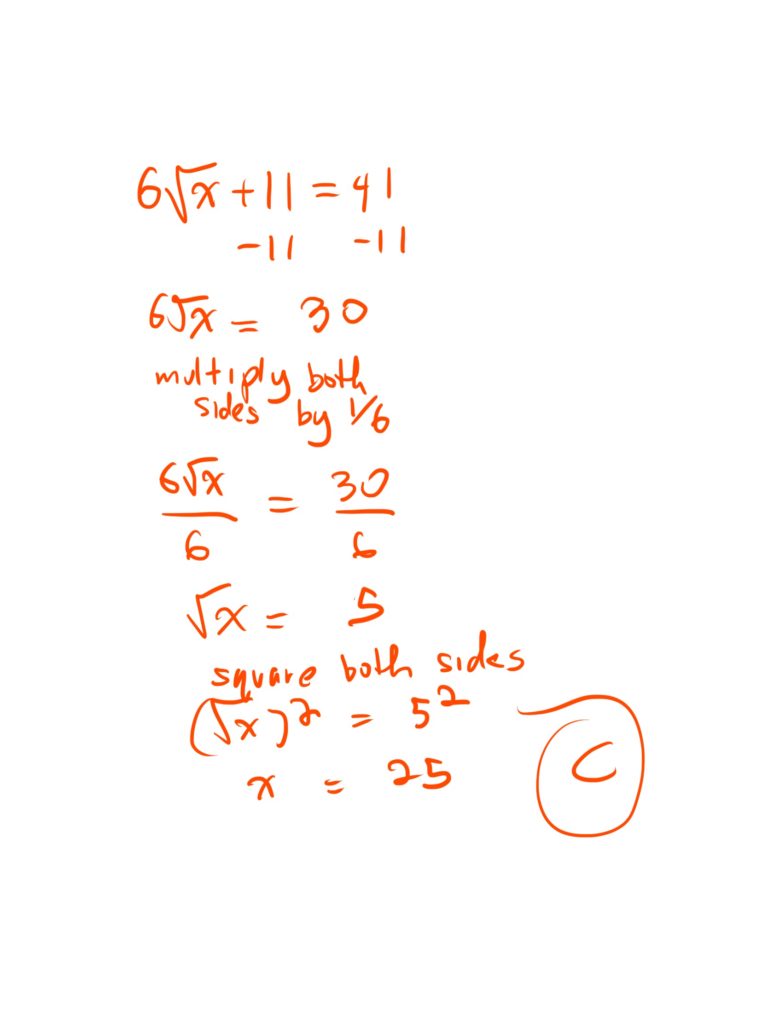 6√x + 11 = 41
-11 -11
6√x = 30
multiply both
sides by 1/6
6√x/6 = 30/6
√x = 5
square both sides
(√x)² = 5²
x = 25
C